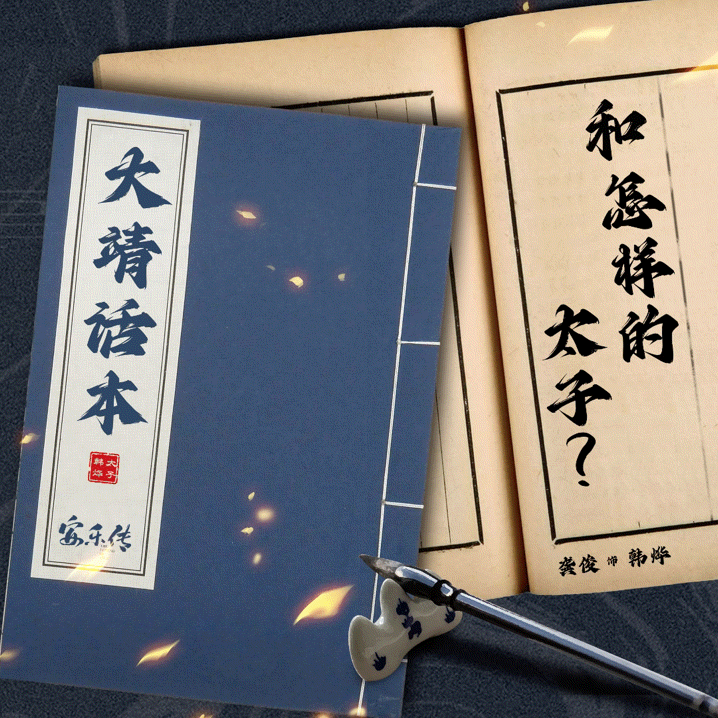 大靖话本
太子
韩烨
安乐传
和怎样的
太子？
龚俊 饰 韩烨